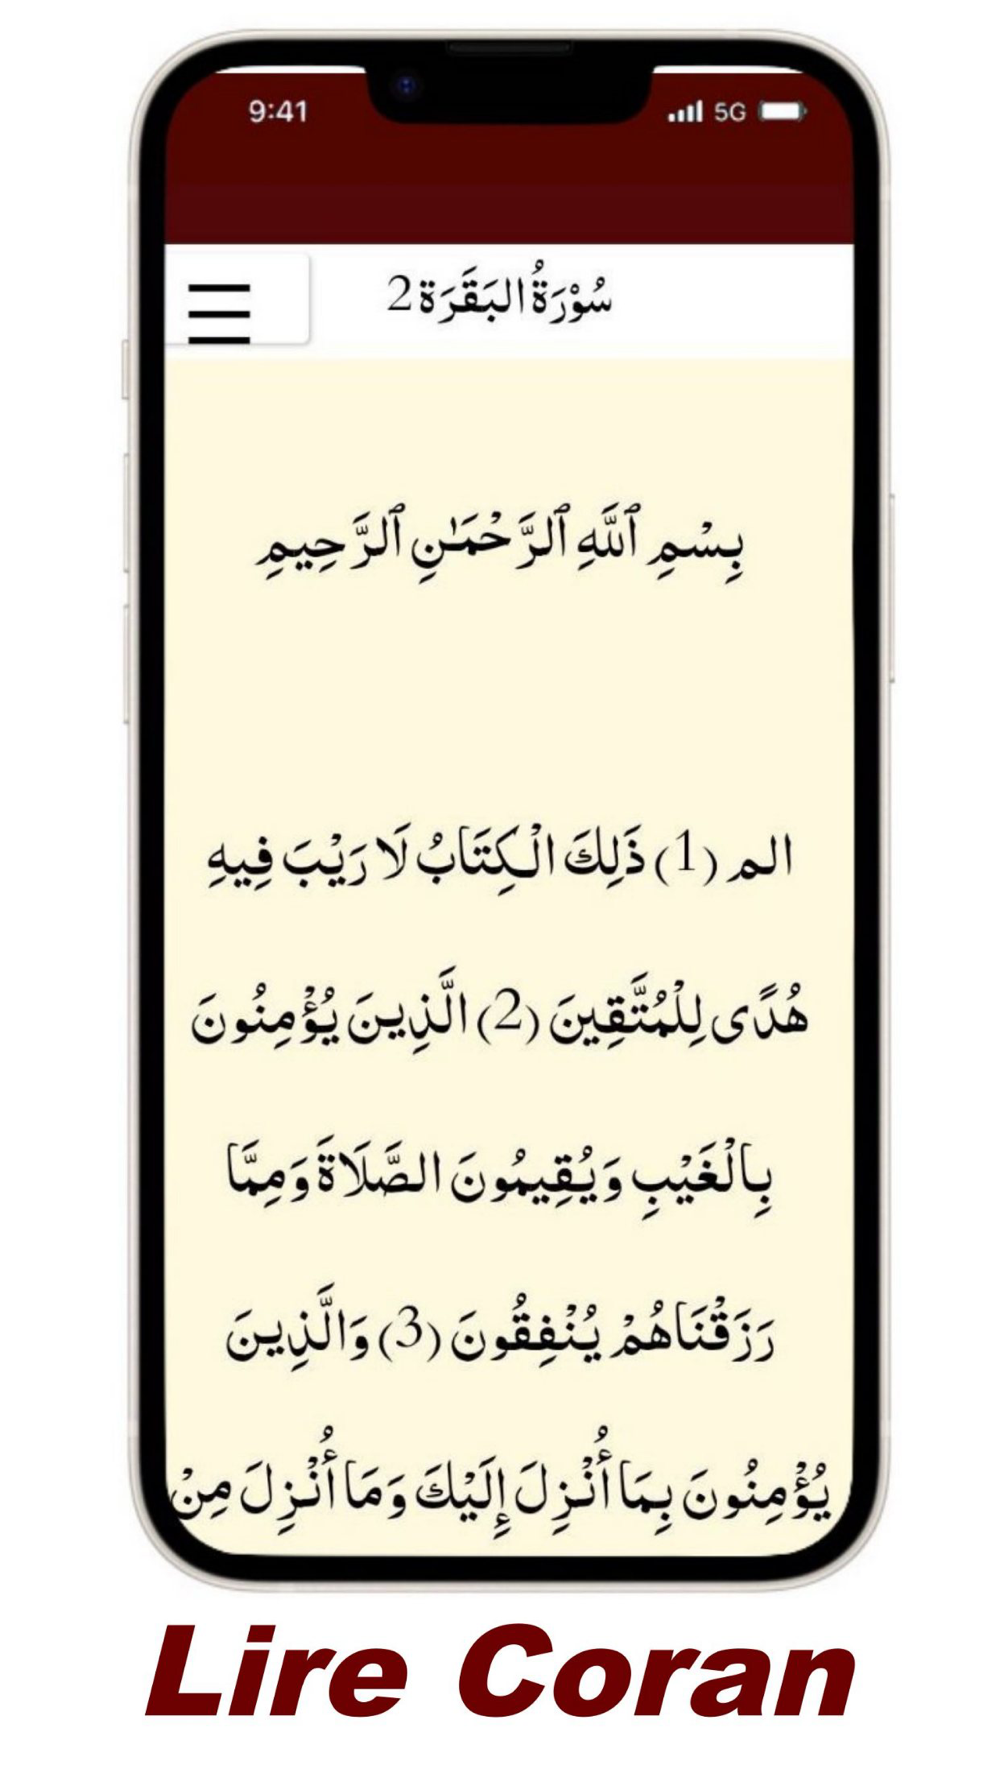 9:41 5G
سُوْرَةُ البَقَرَة 2
بِسْمِ ٱللَّهِ ٱلرَّحْمَـٰنِ ٱلرَّحِيمِ
الم (1) ذَلِكَ الْكِتَابُ لَا رَيْبَ فِيهِ
هُدًى لِلْمُتَّقِينَ (2) الَّذِينَ يُؤْمِنُونَ
بِالْغَيْبِ وَيُقِيمُونَ الصَّلَاةَ وَمِمَّا
رَزَقْنَاهُمْ يُنْفِقُونَ (3) وَالَّذِينَ
يُؤْمِنُونَ بِمَا أُنْزِلَ إِلَيْكَ وَمَا أُنْزِلَ مِنْ
Lire Coran